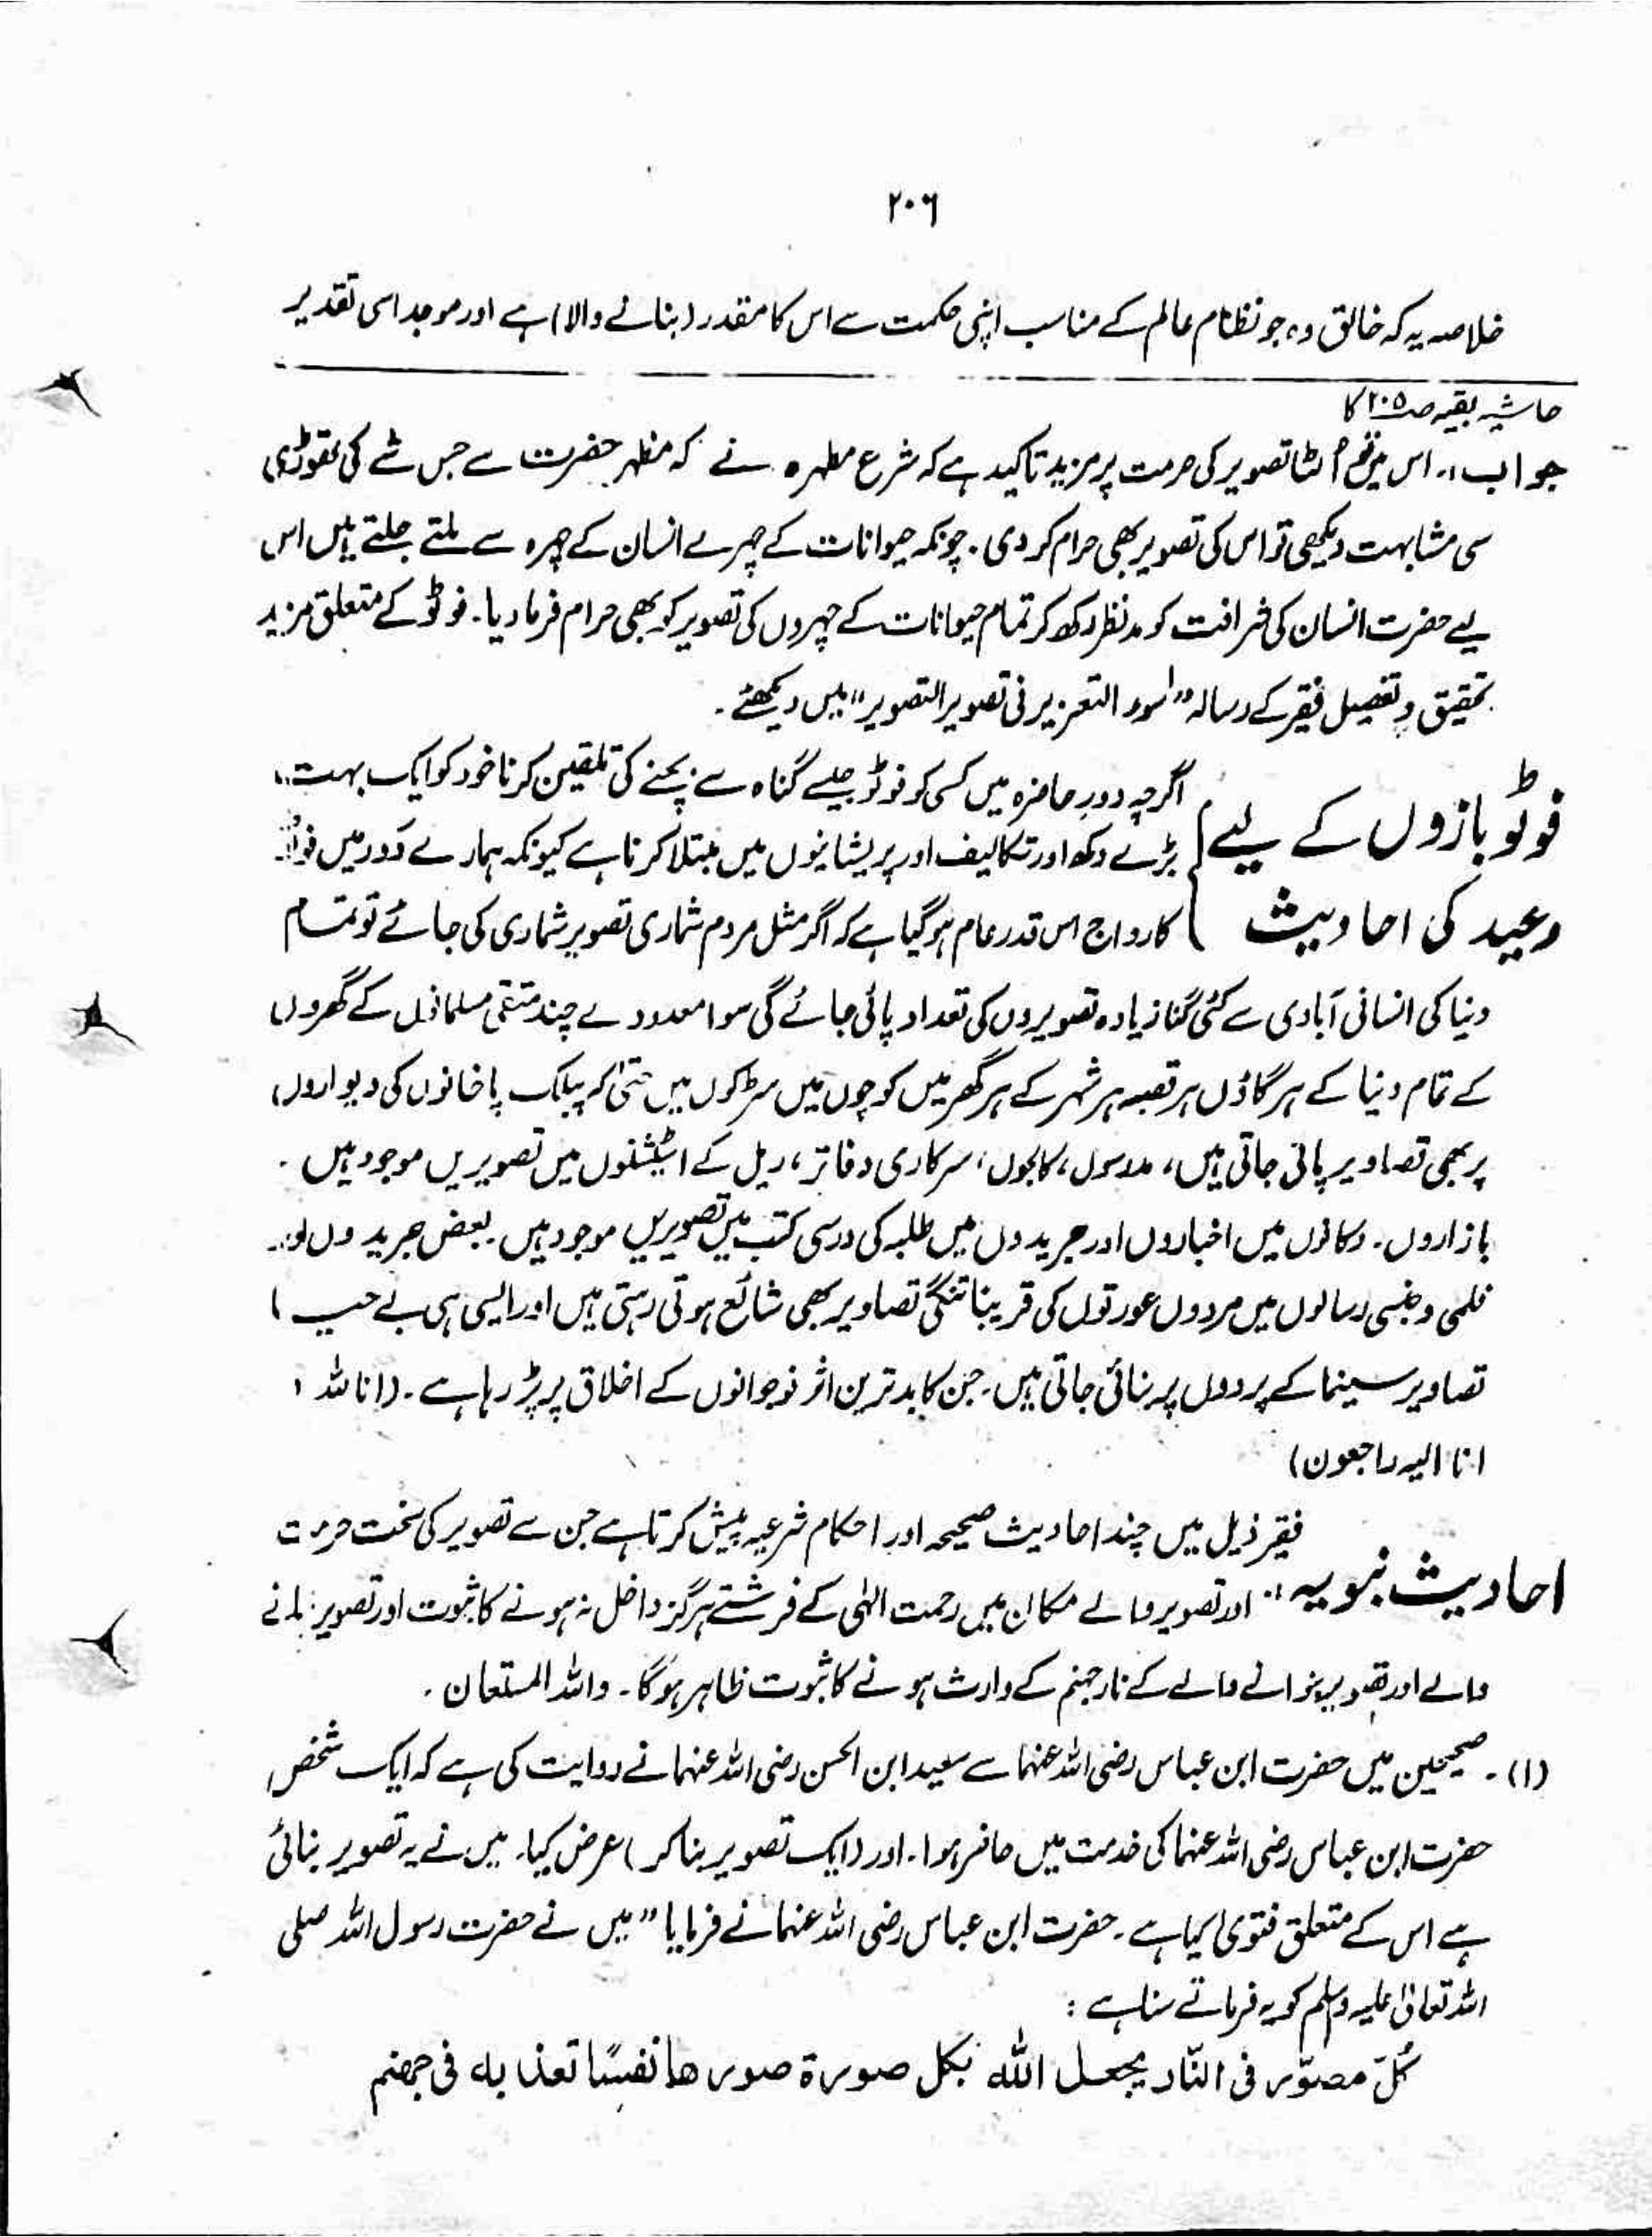 ۲۰۶
خلاصہ یہ کہ خالق وہ جو نظام عالم کے مناسب اپنی حکمت سے اس کا مقدر (بنانے والا) ہے اور موجد اسی تقدیر
حاشیہ بقیہ صـ۲۰۵ کا
جواب :۔ اس میں تو اُلٹا تصویر کی حرمت پر مزید تاکید ہے کہ شرع مطہرہ نے کہ مظہر حضرت سے جس شے کی تھوڑی
سی مشابہت دیکھی تو اس کی تصویر بھی حرام کر دی ۔ چونکہ حیوانات کے چہرے انسان کے چہرہ سے ملتے جلتے ہیں اس
لیے حضرت انسان کی شرافت کو مدنظر رکھ کر تمام حیوانات کے چہروں کی تصویر کو بھی حرام فرما دیا ۔ فوٹو کے متعلق مزید
تحقیق و تفصیل فقیر کے رسالہ " التعزیر فی تصویر التصویر" میں دیکھئے ۔
فوٹو بازوں کے لیے
وعید کی احادیث
اگرچہ دور حاضرہ میں کسی کو فوٹو جیسے گناہ سے بچنے کی تلقین کرنا خود کو ایک بہت
بڑے دکھ اور تکالیف اور پریشانیوں میں مبتلا کرنا ہے کیونکہ ہمارے دَور میں فوٹو
کا رواج اس قدر عام ہو گیا ہے کہ اگر مثل مردم شماری تصویر شماری کی جائے تو تمام
دنیا کی انسانی آبادی سے کئی گنا زیادہ تصویروں کی تعداد پائی جائے گی سوا معدودے چند متقی مسلمانوں کے گھروں
کے تمام دنیا کے ہر گاؤں ہر قصبہ ہر شہر کے ہر گھر میں کوچوں میں سڑکوں میں حتیٰ کہ پبلک پاخانوں کی دیواروں
پر بھی تصاویر پائی جاتی ہیں ، مدرسوں ، کالجوں ، سرکاری دفاتر ، ریل کے اسٹیشنوں میں تصویریں موجود ہیں ۔
بازاروں ۔ دکانوں میں اخباروں اور جریدوں میں طلبہ کی درسی کتب میں تصویریں موجود ہیں ۔ بعض جریدوں اور
فلمی و جنسی رسالوں میں مردوں عورتوں کی قریبًا ننگی تصاویر بھی شائع ہوتی رہتی ہیں اور ایسی ہی بے حیا
تصاویر سینما کے پردوں پر بنائی جاتی ہیں ۔ جن کا بدترین اثر نوجوانوں کے اخلاق پر پڑ رہا ہے ۔ (انا للہ و
انا الیہ راجعون)
احادیث نبویہ :۔
فقیر ذیل میں چند احادیث صحیحہ اور احکام شرعیہ پیش کرتا ہے جن سے تصویر کی سخت حرمت
اور تصویر والے مکان میں رحمت الٰہی کے فرشتے ہرگز داخل نہ ہونے کا ثبوت اور تصویر بنانے
والے اور تصویر بنوانے والے کے نار جہنم کے وارث ہونے کا ثبوت ظاہر ہوگا ۔ واللہ المستعان ۔
(۱) ۔ صحیحین میں حضرت ابن عباس رضی اللہ عنہما سے سعید ابن الحسن رضی اللہ عنہما نے روایت کی ہے کہ ایک شخص
حضرت ابن عباس رضی اللہ عنہما کی خدمت میں حاضر ہوا ۔ اور (ایک تصویر بنا کر) عرض کیا ۔ میں نے یہ تصویر بنائی
ہے اس کے متعلق فتویٰ کیا ہے ۔ حضرت ابن عباس رضی اللہ عنہما نے فرمایا " میں نے حضرت رسول اللہ صلی
اللہ تعالیٰ علیہ وسلم کو یہ فرماتے سنا ہے :
کُلّ مصوّر فی النّار یجعل اللہ بکل صورۃ صورھا نفسًا تعذبہ فی جھنم